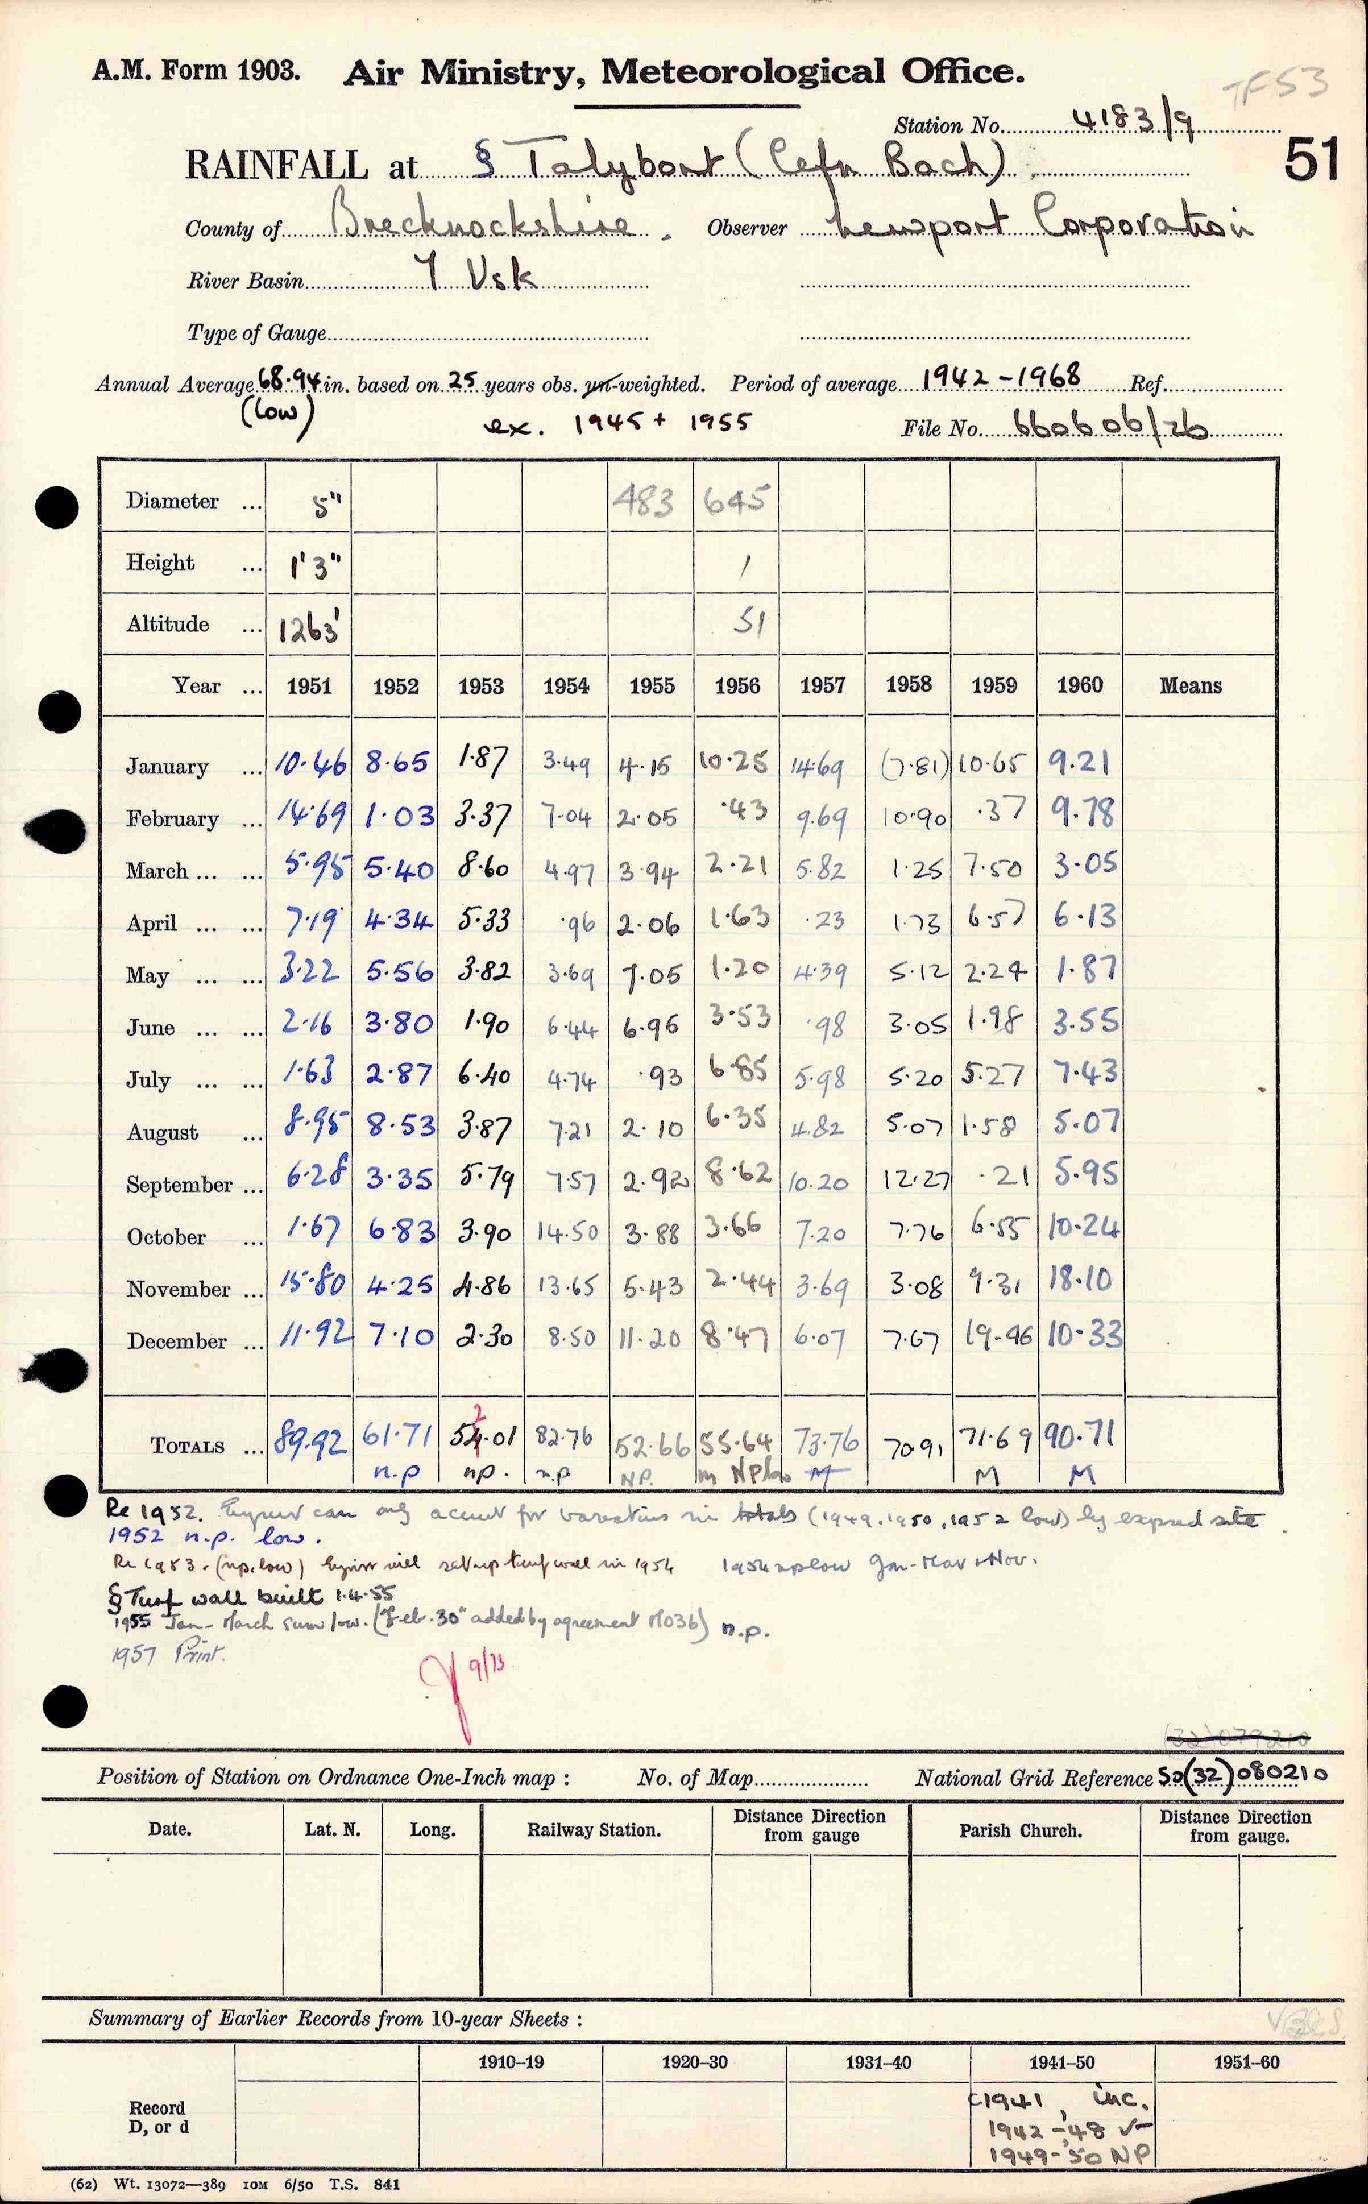 A.M. Form 1903. Air Ministry, Meteorological Office.
TF53
Station No. 4183/9
51
RAINFALL at § Talybont (Cefn Bach)
County of Brecknockshire. Observer Newport Corporation
River Basin 7 Usk
Type of Gauge
Annual Average 68.94 in. based on 25 years obs. un-weighted. Period of average 1942-1968 Ref.
(low) ex. 1945 + 1955 File No. 660606/26
Diameter ... 5" 483 645
Height ... 1'3" 1
Altitude ... 1263' 51
Year ... 1951 1952 1953 1954 1955 1956 1957 1958 1959 1960 Means
January ... 10.46 8.65 1.87 3.49 4.15 10.25 14.69 (7.81) 10.65 9.21
February ... 14.69 1.03 3.37 7.04 2.05 .43 9.69 10.90 .37 9.78
March ... ... 5.95 5.40 8.60 4.97 3.94 2.21 5.82 1.25 7.50 3.05
April ... ... 7.19 4.34 5.33 .96 2.06 1.63 .23 1.73 6.57 6.13
May ... ... 3.22 5.56 3.82 3.69 7.05 1.20 4.39 5.12 2.24 1.87
June ... ... 2.16 3.80 1.90 6.44 6.95 3.53 .98 3.05 1.98 3.55
July ... ... 1.63 2.87 6.40 4.74 .93 6.85 5.98 5.20 5.27 7.43
August ... 8.95 8.53 3.87 7.21 2.10 6.35 4.82 5.07 1.58 5.07
September ... 6.28 3.35 5.79 7.57 2.92 8.62 10.20 12.27 .21 5.95
October ... 1.67 6.83 3.90 14.50 3.88 3.66 7.20 7.76 6.55 10.24
November ... 15.80 4.25 4.86 13.65 5.43 2.44 3.69 3.08 9.31 18.10
December ... 11.92 7.10 2.30 8.50 11.20 8.47 6.07 7.67 19.46 10.33
2
TOTALS ... 89.92 61.71 54.01 82.76 52.66 55.64 73.76 70.91 71.69 90.71
n.p np. n.p NP. m NP low M M M
Re 1952. can only account for variations in totals (1949, 1950, 1952 low) by exposed site.
1952 n.p. low.
Re 1953. (np. low) will set up turf wall in 1954 1954 np low Jan-Mar + Nov.
§ Turf wall built 1.4.55
1955 Jan-March sum low. (Feb .30" added by agreement MO3b) n.p.
1957 Print.
9/73
(32)079210
Position of Station on Ordnance One-Inch map : No. of Map National Grid Reference SO(32)080210
Date. Lat. N. Long. Railway Station. Distance Direction from gauge Parish Church. Distance Direction from gauge.
Summary of Earlier Records from 10-year Sheets :
1910–19 1920–30 1931–40 1941–50 1951–60
Record
D, or d
c1941, inc.
1942-'48 ✓
1949-'50 NP
(62) Wt. 13072—389 10M 6/50 T.S. 841